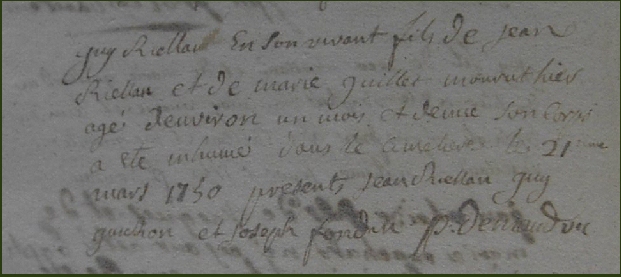 guy Riellan En son vivant fils de jean
Riellan et de marie guillet mourut hier
agé denviron un mois et demie son corps
a ete inhumé dans le cimetiere le 21me
mars 1750 presents jean Riellan guy
guichon et joseph